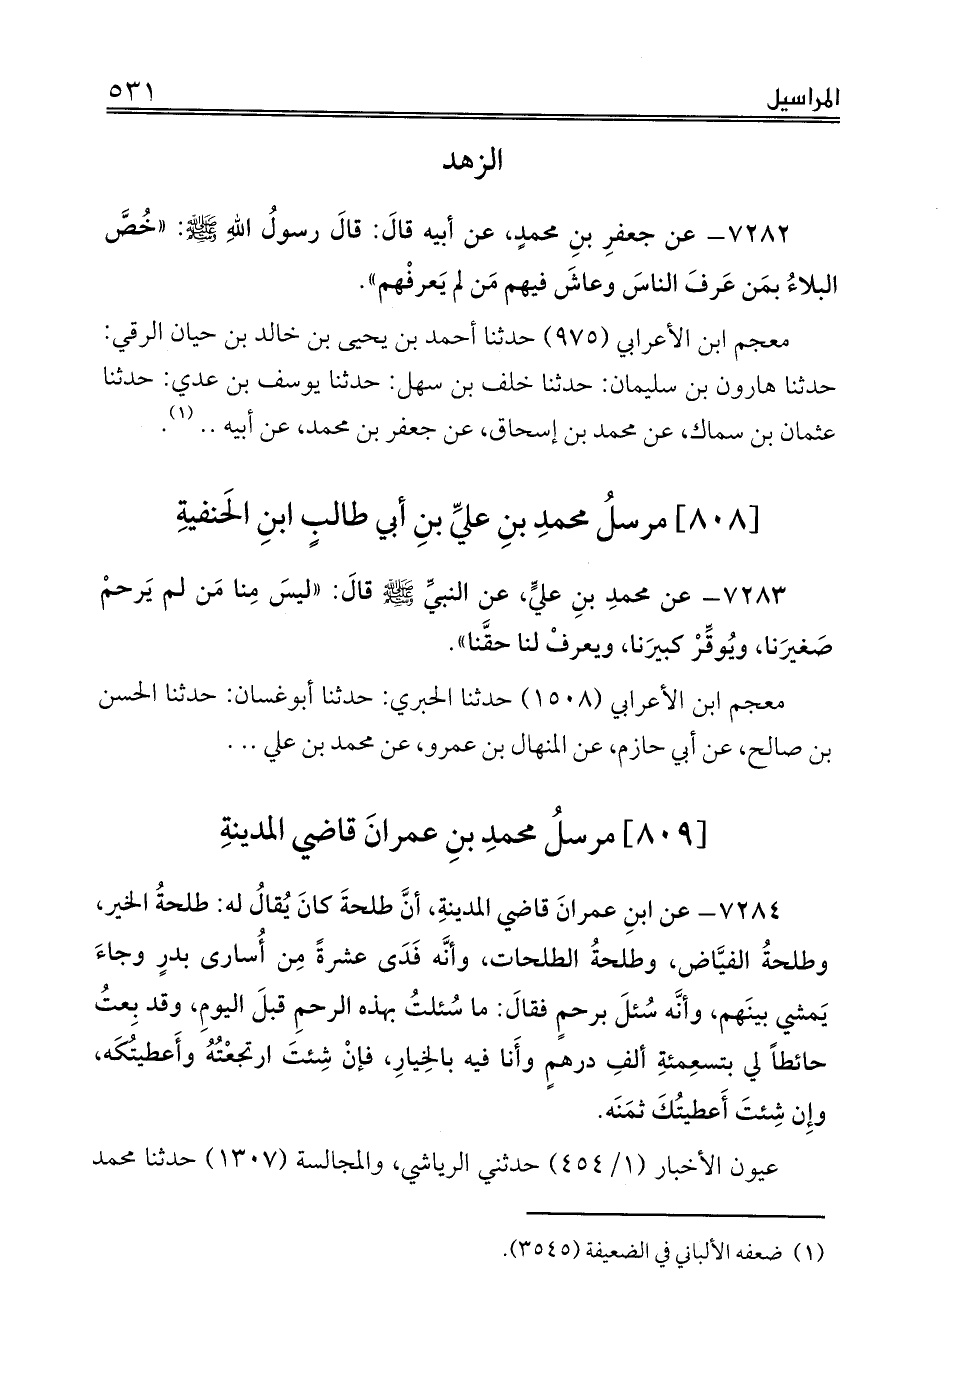 المراسيل ٥٣١
الزهد
٧٢٨٢- عن جعفرِ بنِ محمدٍ، عن أبيه قالَ: قالَ رسولُ اللهِ ﷺ: «خُصَّ
البلاءُ بمَن عَرفَ الناسَ وعاشَ فيهم مَن لم يَعرفْهم».
معجم ابن الأعرابي (٩٧٥) حدثنا أحمد بن يحيى بن خالد بن حيان الرقي:
حدثنا هارون بن سليمان: حدثنا خلف بن سهل: حدثنا يوسف بن عدي: حدثنا
عثمان بن سماك، عن محمد بن إسحاق، عن جعفر بن محمد، عن أبيه .. (١).
[٨٠٨] مرسلُ محمدِ بنِ عليِّ بنِ أبي طالبٍ ابنِ الحَنفيةِ
٧٢٨٣- عن محمدِ بنِ عليٍّ، عن النبيِّ ﷺ قالَ: «ليسَ مِنا مَن لم يَرحمْ
صَغيرَنا، ويُوقِّرْ كبيرَنا، ويعرفْ لنا حقَّنا».
معجم ابن الأعرابي (١٥٠٨) حدثنا الحبري: حدثنا أبوغسان: حدثنا الحسن
بن صالح، عن أبي حازم، عن المنهال بن عمرو، عن محمد بن علي ...
[٨٠٩] مرسلُ محمدِ بنِ عمرانَ قاضي المدينةِ
٧٢٨٤- عن ابنِ عمرانَ قاضي المدينةِ، أنَّ طلحةَ كانَ يُقالُ له: طلحةُ الخير،
وطلحةُ الفيَّاض، وطلحةُ الطلحات، وأنَّه فَدَى عشرةً مِن أُسارى بدرٍ وجاءَ
يَمشي بينَهم، وأنَّه سُئلَ برحمٍ فقالَ: ما سُئلتُ بهذه الرحمِ قبلَ اليومِ، وقد بِعتُ
حائطاً لي بتسعِمئةِ ألفِ درهمٍ وأنا فيه بالخِيارِ، فإنْ شِئتَ ارتجعْتُهُ وأَعطيتُكَه،
وإن شِئتَ أَعطيتُكَ ثمَنَه.
عيون الأخبار (١/ ٤٥٤) حدثني الرياشي، والمجالسة (١٣٠٧) حدثنا محمد
(١) ضعفه الألباني في الضعيفة (٣٥٤٥).